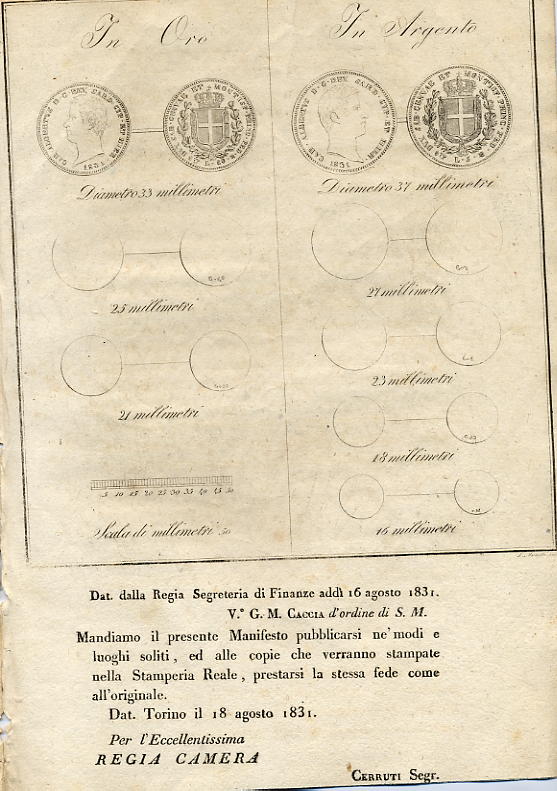 In Oro
In Argento
CAR. ALBERTVS D. G. REX SARD. CYP. ET HIER.
1831
DVX SAB. GENVAE ET MONTISF. PRINC. PED.
CAR. ALBERTVS D. G. REX SARD. CYP. ET HIER.
1831
DVX SAB. GENVAE ET MONTISF. PRINC. PED.
L. 5
Diametro 33 millimetri
Diametro 37 millimetri
25 millimetri
27 millimetri
21 millimetri
23 millimetri
18 millimetri
16 millimetri
5 10 15 20 25 30 35 40 45 50
Scala di millimetri 50
Dat. dalla Regia Segreteria di Finanze addì 16 agosto 1831.
V.° G. M. CACCIA d'ordine di S. M.
Mandiamo il presente Manifesto pubblicarsi ne' modi e
luoghi soliti, ed alle copie che verranno stampate
nella Stamperia Reale, prestarsi la stessa fede come
all'originale.
Dat. Torino il 18 agosto 1831.
Per l'Eccellentissima
REGIA CAMERA
CERRUTI Segr.